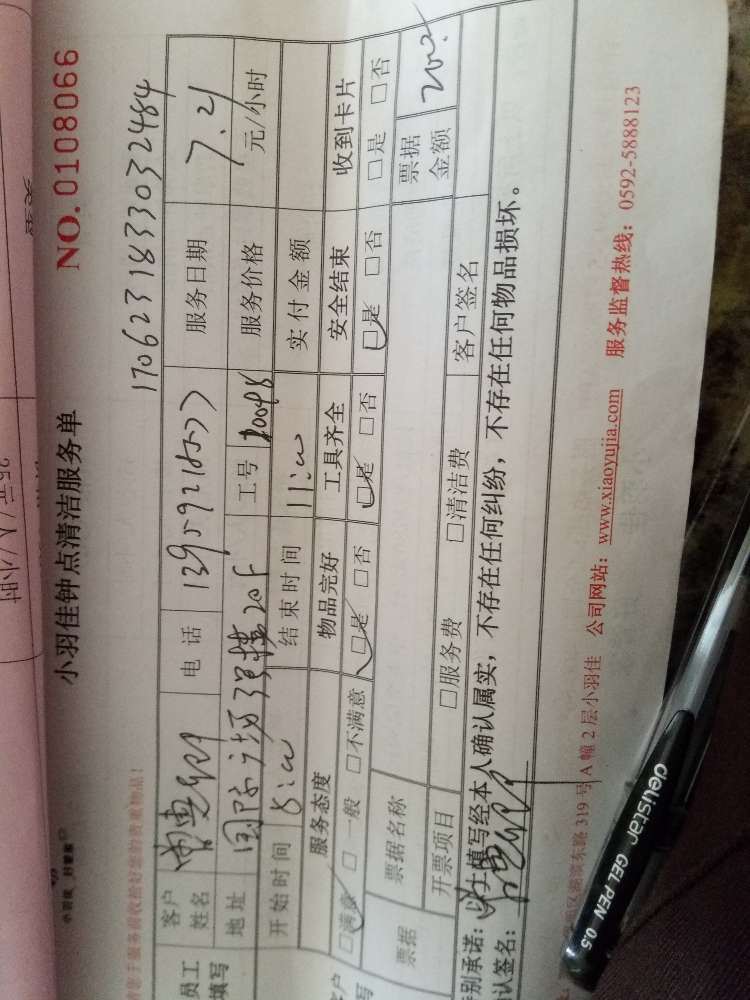 小羽佳钟点清洁服务单
NO. 0108066
1706231833032484
员工填写
客户姓名
电话 13959216577
服务日期 7.21
地址 国际广场
工号
服务价格 元/小时
开始时间 8:00
结束时间 11:00
实付金额
服务态度 物品完好 工具齐全 安全结束 收到卡片
□满意 □一般 □不满意 □是 □否 □是 □否 □是 □否 □是 □否
票据 票据名称 票据金额
开票项目 □服务费 □清洁费 客户签名
特别承诺：以上填写经本人确认属实，不存在任何纠纷，不存在任何物品损坏。
确认签名：
湖滨东路 319 号 A 幢 2 层小羽佳 公司网站：www.xiaoyujia.com 服务监督热线：0592-5888123
delistar GEL PEN 0.5